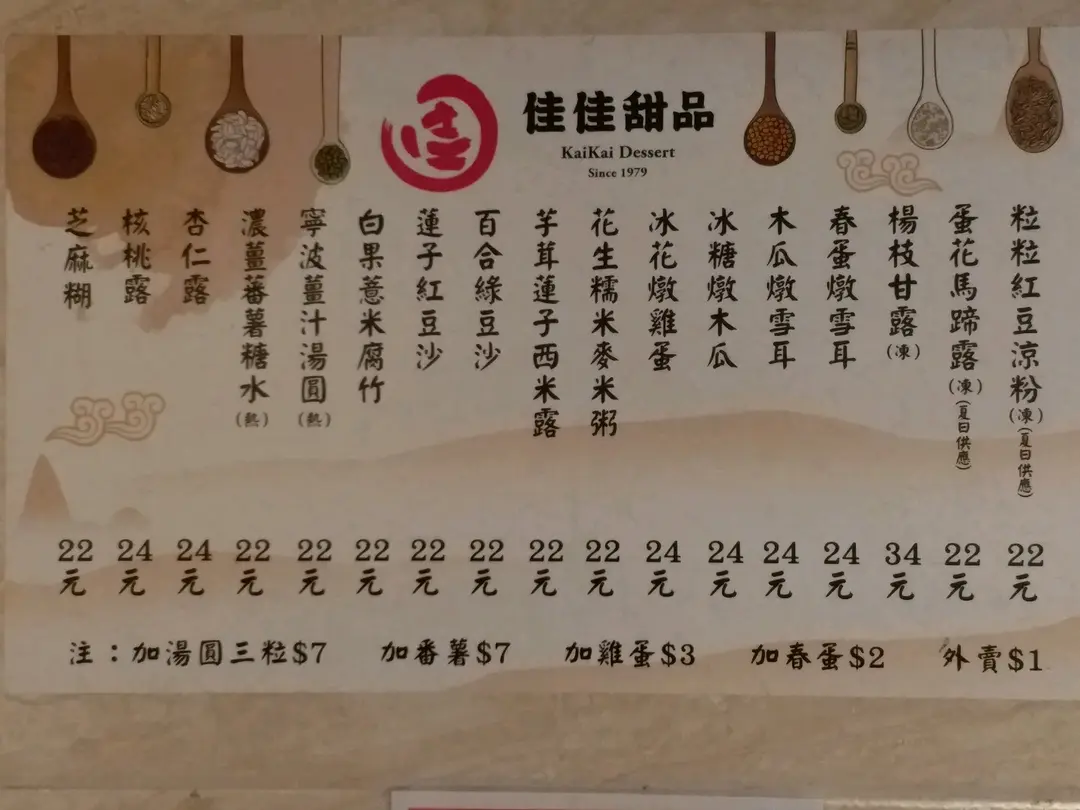 佳佳甜品
KaiKai Dessert
Since 1979
粒粒紅豆涼粉(凍)(夏日供應) 22元
蛋花馬蹄露(凍)(夏日供應) 22元
楊枝甘露(凍) 34元
春蛋燉雪耳 24元
木瓜燉雪耳 24元
冰糖燉木瓜 24元
冰花燉雞蛋 24元
花生糯米麥米粥 22元
芋茸蓮子西米露 22元
百合綠豆沙 22元
蓮子紅豆沙 22元
白果薏米腐竹 22元
寧波薑汁湯圓(熱) 22元
濃薑蕃薯糖水(熱) 22元
杏仁露 24元
核桃露 24元
芝麻糊 22元
注：加湯圓三粒$7 加番薯$7 加雞蛋$3 加春蛋$2 外賣$1